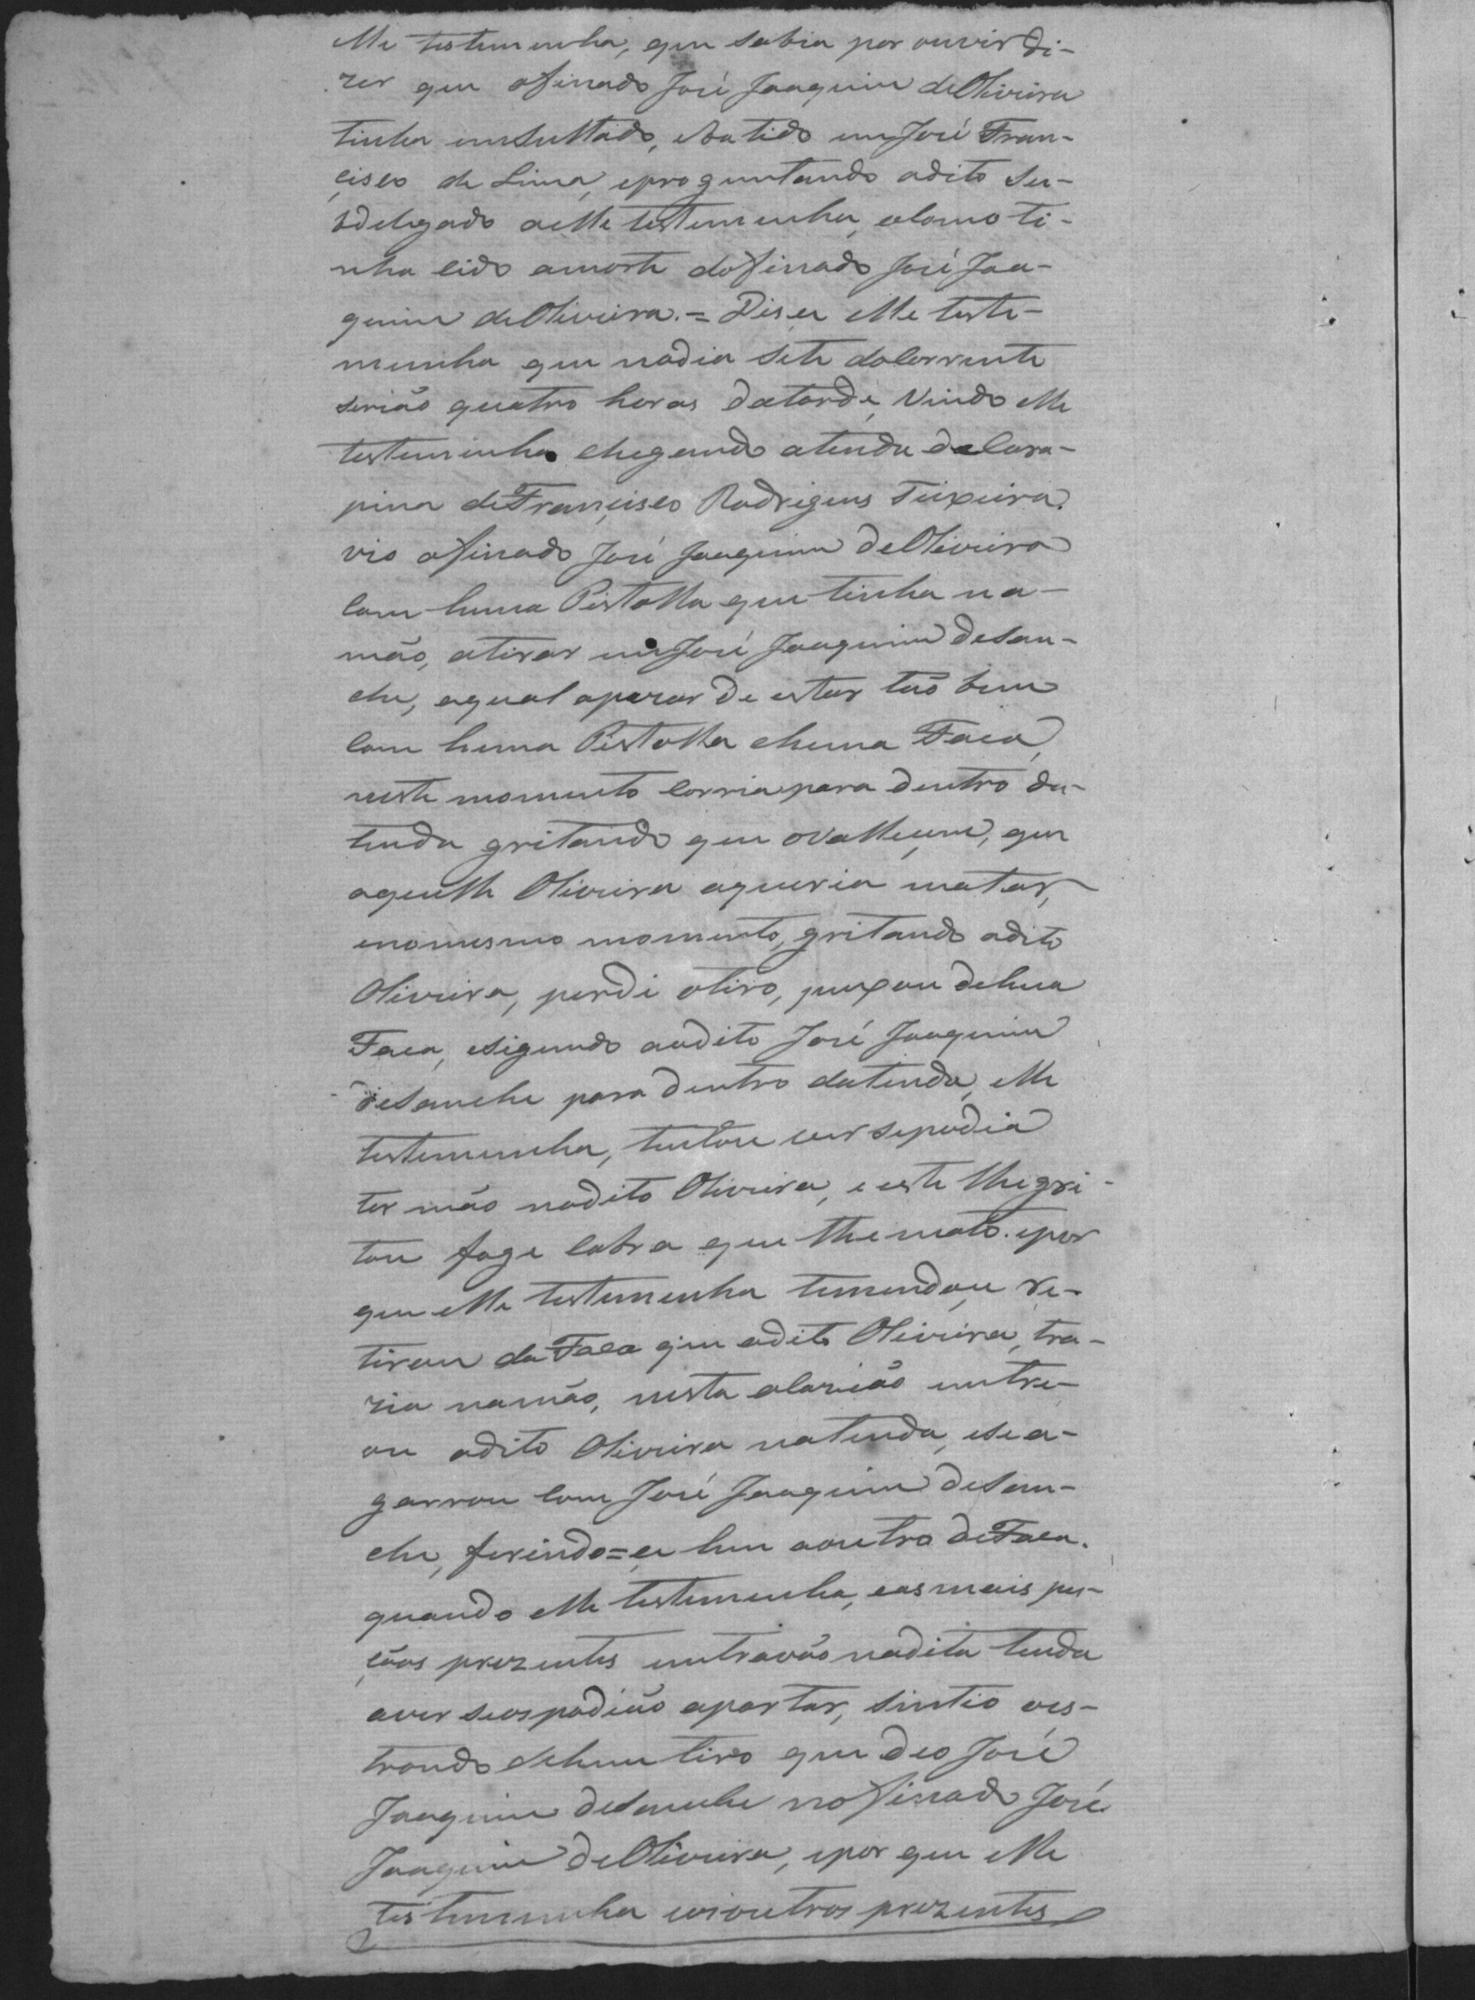 elle testemunha, que sabia por ouvir di-
zer que ofinado José Joaquim deOliveira
tinha emsultado, ebatido emJosé Fran-
cisco de Lima, eproguntando odito su-
bdelegado aelle testemunha, ocomo ti-
nha sido amorte dofinado José Joa-
quim deOliveira.= Disse elle teste-
munha que nodia sete doCorrente
serião quatro horas datarde, Vindo elle
testeminha chegando atenda deCara-
pina deFrancisco Rodrigues Teixeira.
vio ofinado José Joaquim deOliveira
Com huma Pistolla que tinha na-
mão, atirar emJosé Joaquim deSan-
che, oqual apezar de estar tão bem
Com huma Pistolla ehuma Faca,
neste momento Corria para dentro da-
tenda gritando que ovallecem, que
aquelle Oliveira oqueria matar,
enomesmo momento, gritando odito
Oliveira, perdi otiro, puxou dehua
Faca, esiguindo aodito José Joaquim
deSanche para dentro datenda, elle
testemunha, tentou ver sepodia
ter mão nodito Oliveira, e este lhegri-
tou foge Cabra que lhe mato. epor
que elle testemunha temendose re-
tirou da Faca que odito Oliveira, tra-
zia namão, nesta ocazião entre-
ou odito Oliveira natenda, esea-
garrou Com José Joaquim deSan-
che, ferindo=se hum aoutro deFaca.
quando elle testemunha, eas mais pes-
çoas prezentes entravão nadita tenda
aver seospodião apartar, sintio oes-
trondo dehum tiro que deo José
Joaquim deSanche nofinado José
Joaquim deOliveira, epor que elle
testemunha eosoutros prezentes